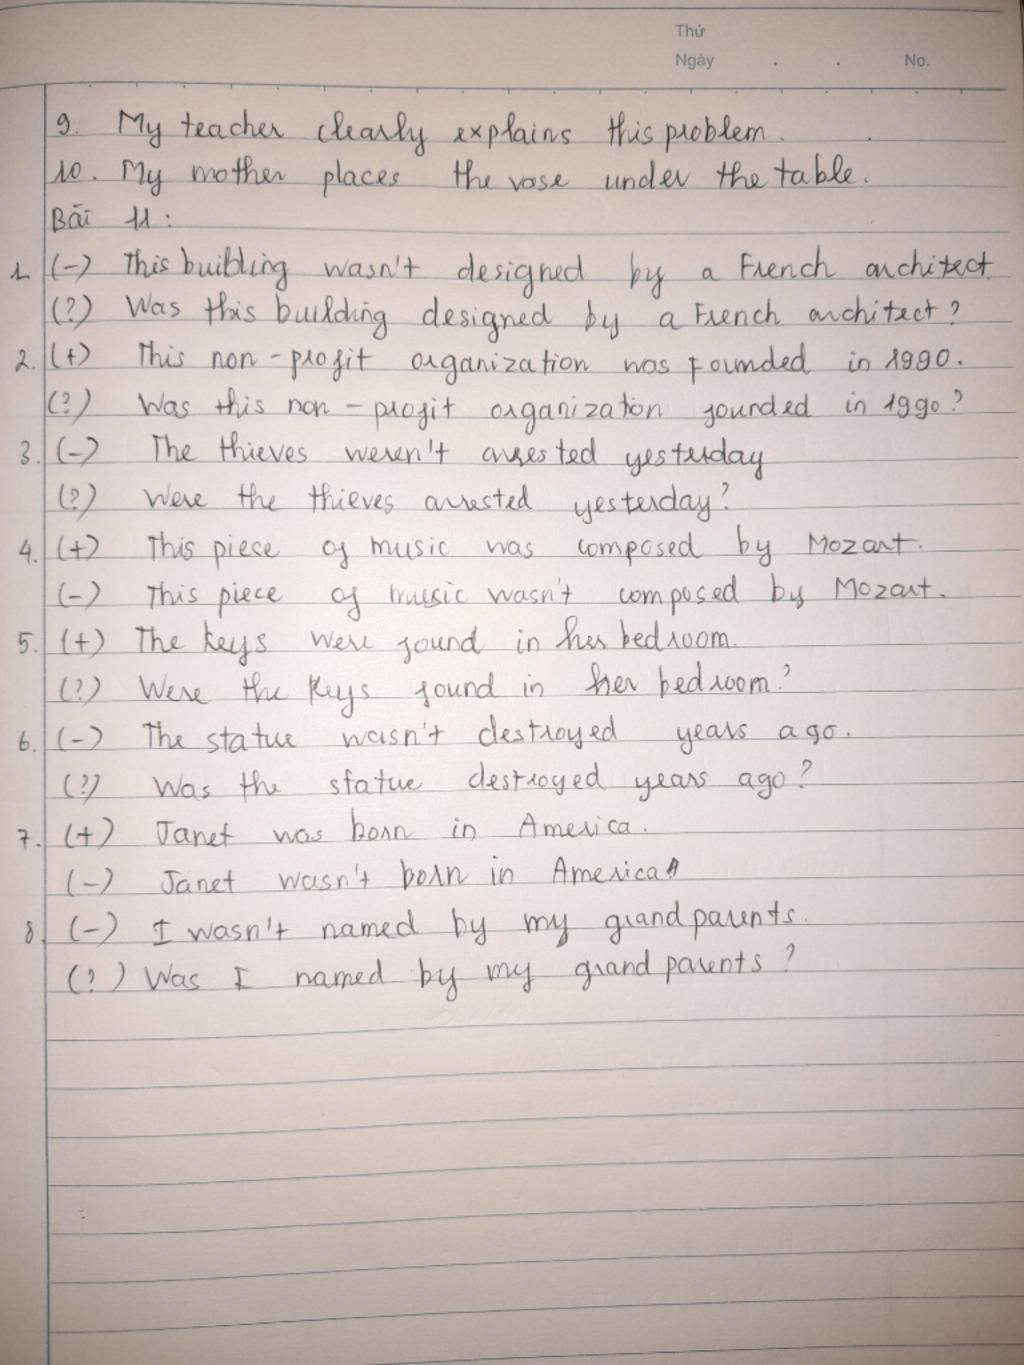 Thứ
Ngày . . No.
9. My teacher clearly explains this problem.
10. My mother places the vase under the table.
Bài 11:
1. (-) This building wasn't designed by a French architect.
(?) Was this building designed by a French architect?
2. (+) This non-profit organization was founded in 1990.
(?) Was this non-profit organization founded in 1990?
3. (-) The thieves weren't arrested yesterday
(?) Were the thieves arrested yesterday?
4. (+) This piece of music was composed by Mozart.
(-) This piece of music wasn't composed by Mozart.
5. (+) The keys were found in her bedroom.
(?) Were the keys found in her bedroom?
6. (-) The statue wasn't destroyed years ago.
(?) Was the statue destroyed years ago?
7. (+) Janet was born in America.
(-) Janet wasn't born in America
8. (-) I wasn't named by my grandparents.
(?) Was I named by my grandparents?